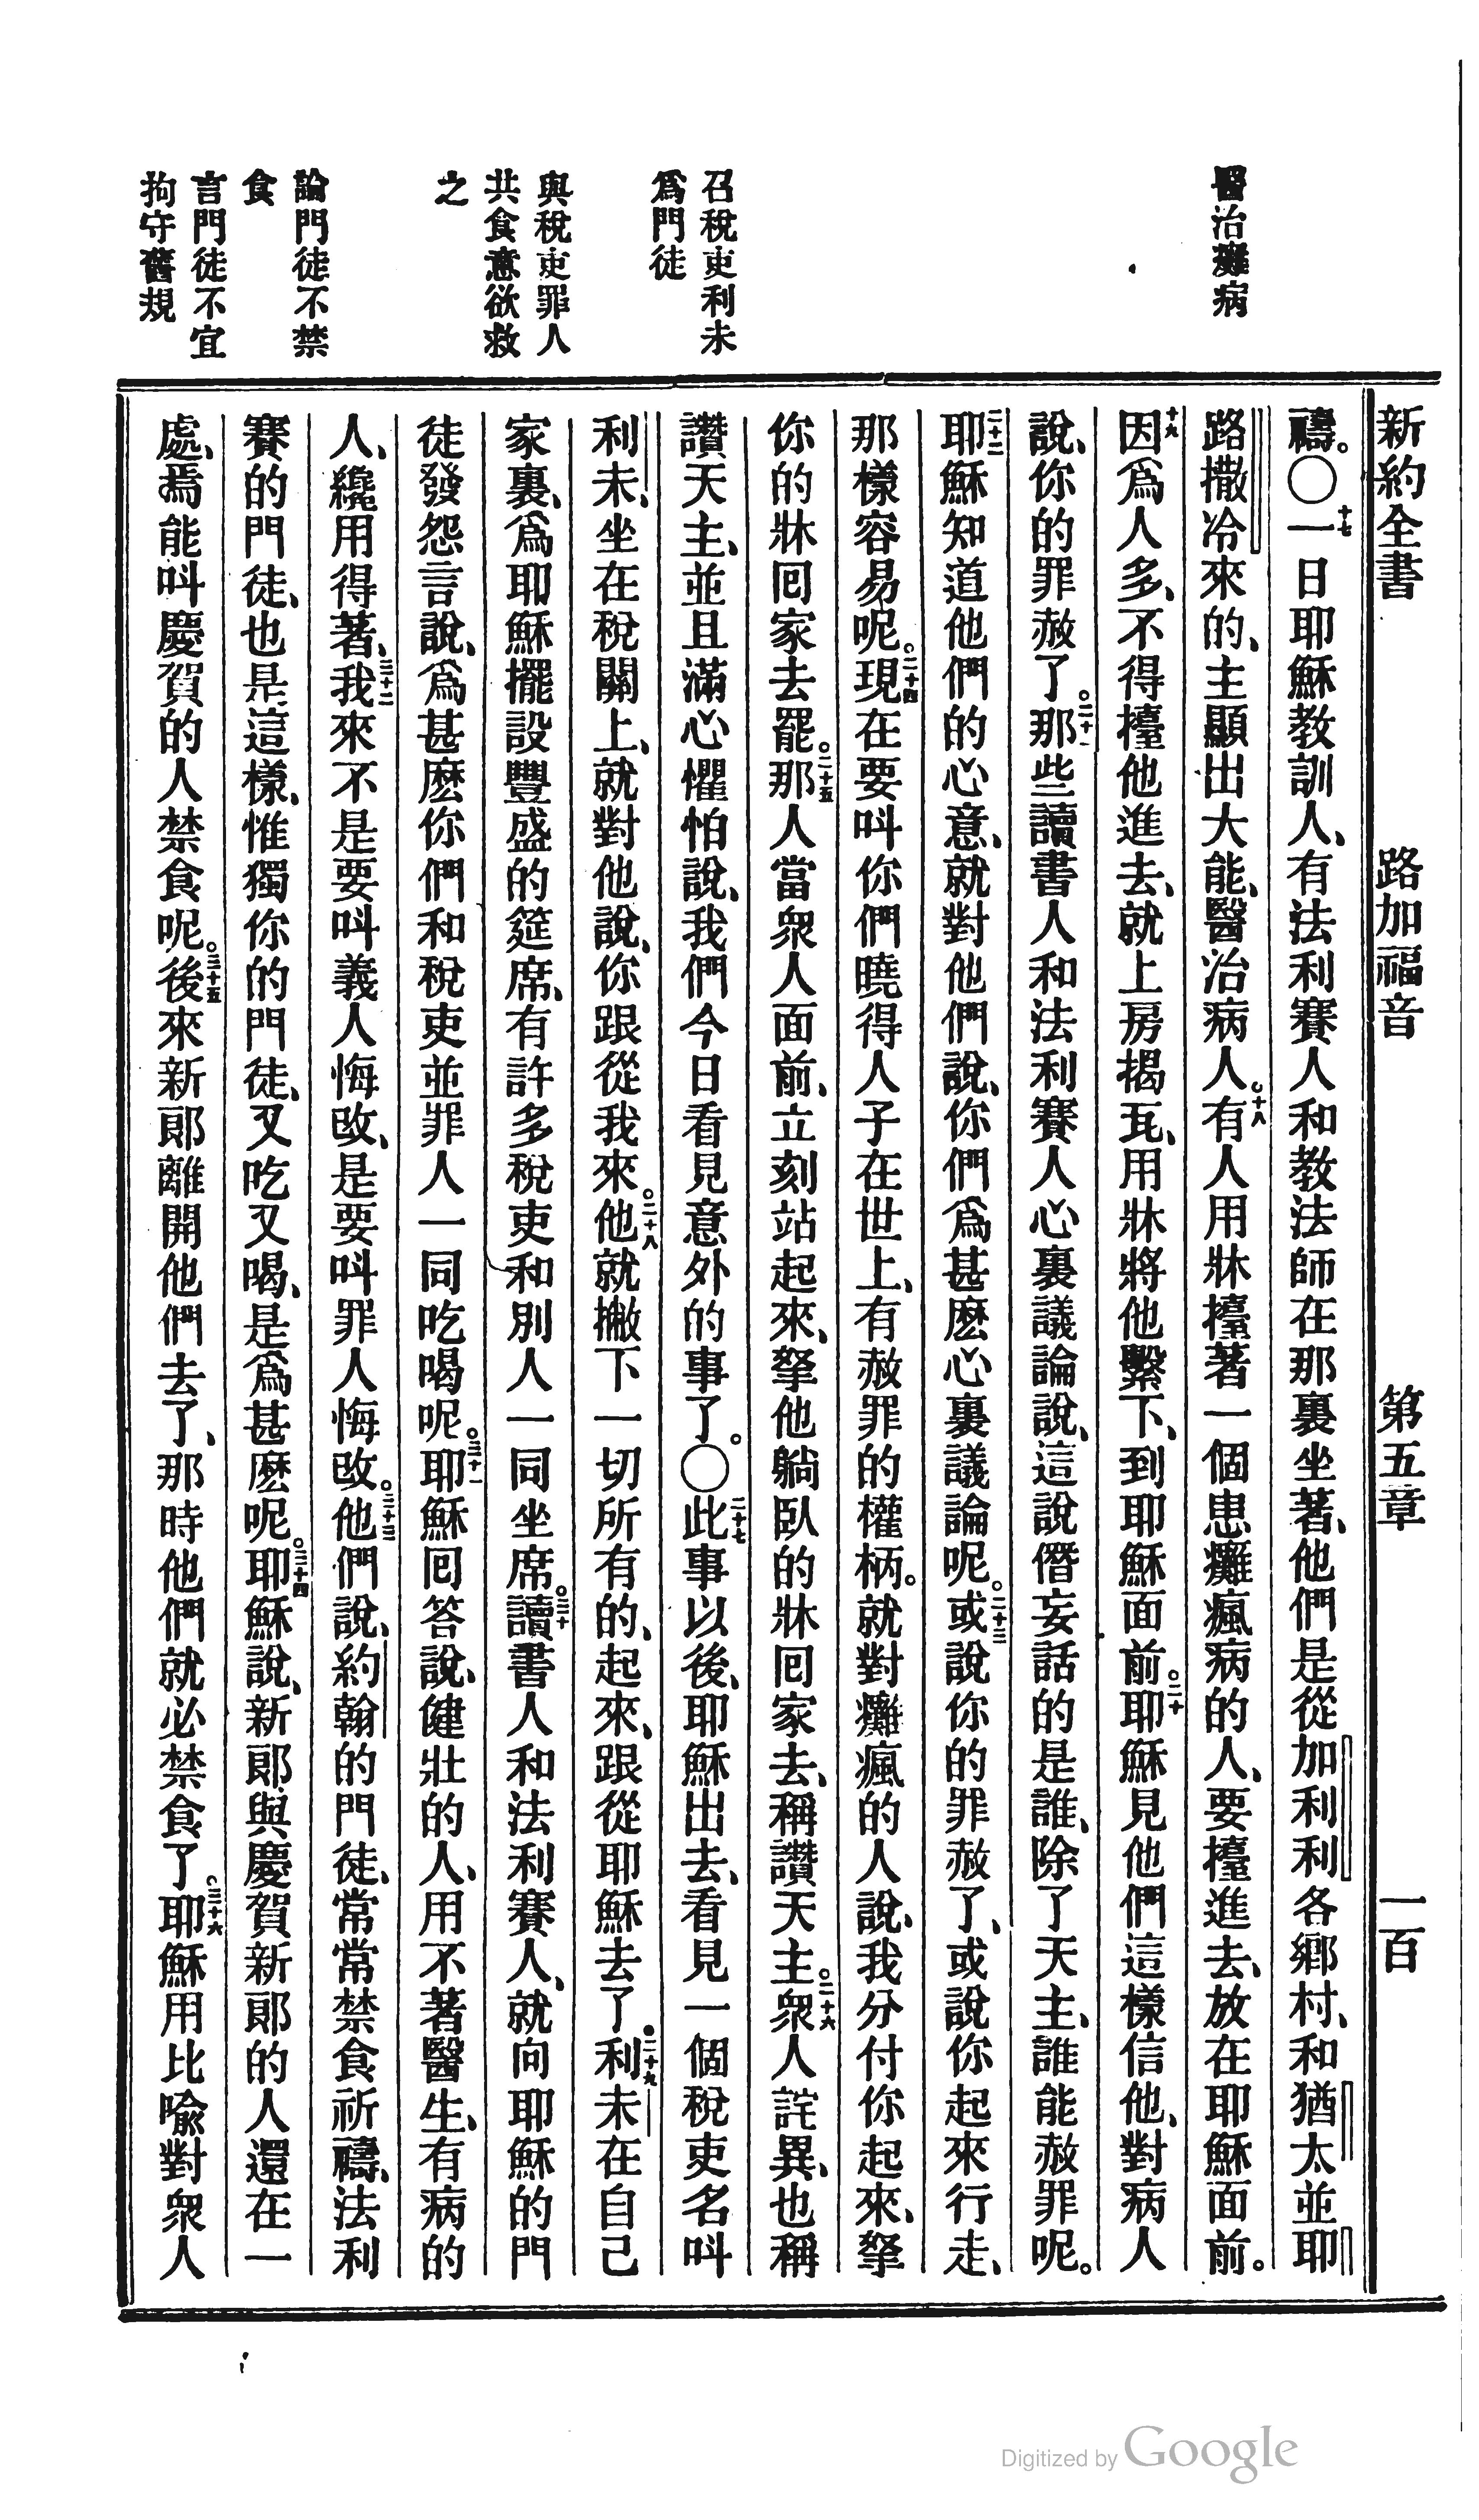 新約全書 路加福音 第五章 一百
醫治癱病
召稅吏利未
爲門徒
與稅吏罪人
共食意欲救
之
論門徒不禁
食
言門徒不宜
拘守舊規
禱。〇十七一日耶穌教訓人、有法利賽人和教法師在那裏坐著、他們是從加利利各鄉村、和猶太並耶
路撒冷來的、主顯出大能、醫治病人。十八有人用牀擡著一個患癱瘋病的人、要擡進去、放在耶穌面前。
十九因爲人多、不得擡他進去、就上房揭瓦、用牀將他繫下、到耶穌面前。二十耶穌見他們這樣信他、對病人
說、你的罪赦了。二十一那些讀書人和法利賽人心裏議論說、這說僭妄話的是誰、除了天主、誰能赦罪呢。
二十二耶穌知道他們的心意、就對他們說、你們爲甚麽心裏議論呢。二十三或說你的罪赦了、或說你起來行走、
那樣容易呢。二十四現在要叫你們曉得人子在世上、有赦罪的權柄。就對癱瘋的人說、我分付你起來、拏
你的牀回家去罷。二十五那人當衆人面前、立刻站起來、拏他躺臥的牀回家去、稱讚天主。二十六衆人詫異、也稱
讚天主、並且滿心懼怕說、我們今日看見意外的事了。〇二十七此事以後、耶穌出去、看見一個稅吏名叫
利未、坐在稅關上、就對他說、你跟從我來。二十八他就撇下一切所有的、起來、跟從耶穌去了。二十九利未在自己
家裏、爲耶穌擺設豐盛的筵席、有許多稅吏和別人一同坐席。三十讀書人和法利賽人、就向耶穌的門
徒發怨言說、爲甚麽你們和稅吏並罪人一同吃喝呢。三十一耶穌回答說、健壯的人、用不著醫生、有病的
人、纔用得著、三十二我來不是要叫義人悔改、是要叫罪人悔改。三十三他們說、約翰的門徒、常常禁食祈禱、法利
賽的門徒、也是這樣、惟獨你的門徒、又吃又喝、是爲甚麽呢。三十四耶穌說、新郎與慶賀新郎的人還在一
處、焉能叫慶賀的人禁食呢。三十五後來新郎離開他們去了、那時他們就必禁食了。三十六耶穌用比喻對衆人
Digitized by Google